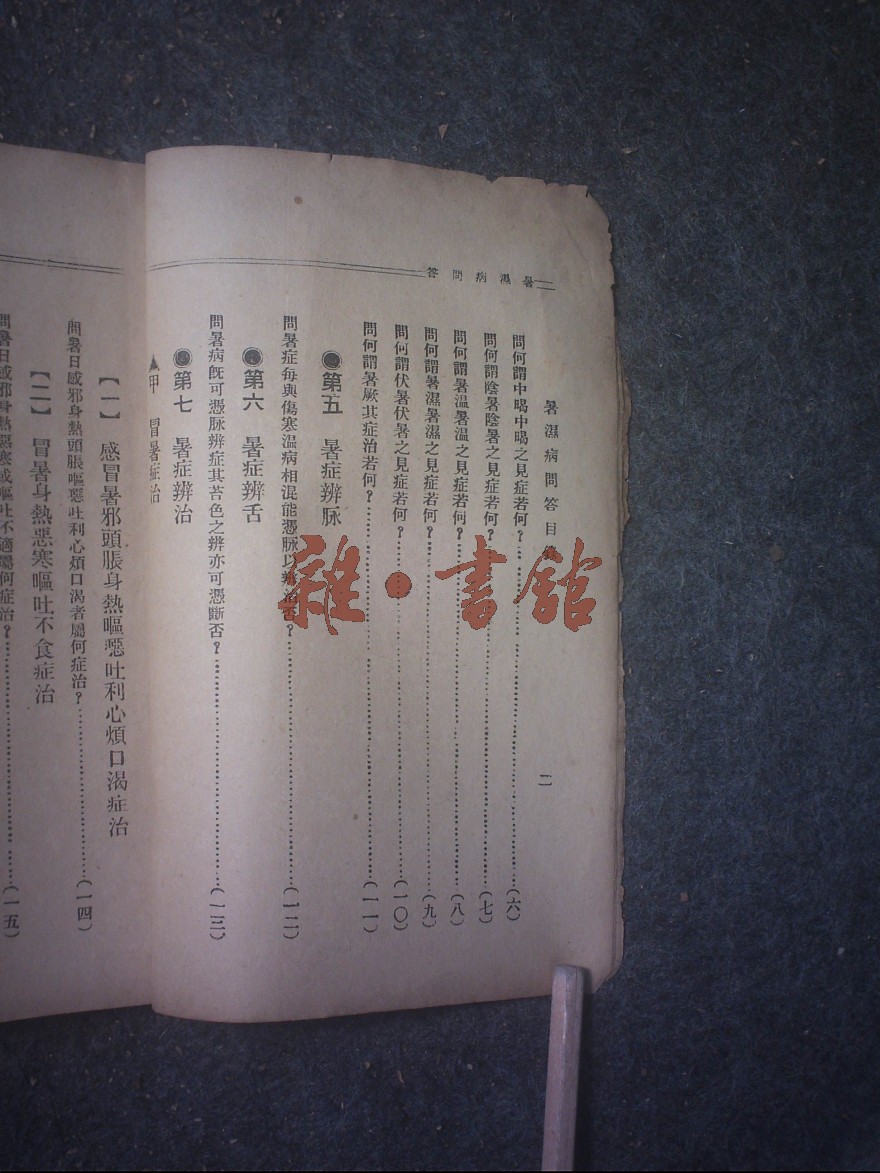 暑濕病問答
暑濕病問答目錄
二
問何謂中暍中暍之見症若何?……(六)
問何謂陰暑陰暑之見症若何?……(七)
問何謂暑温暑温之見症若何?……(八)
問何謂暑濕暑濕之見症若何?……(九)
問何謂伏暑伏暑之見症若何?……(一〇)
問何謂暑厥其症治若何?……(一一)
●第五 暑症辨脉
問暑症每與傷寒温病相混能憑脉以辨治否?……(一二)
●第六 暑症辨舌
問暑病旣可憑脉辨症其苔色之辨亦可憑斷否?……(一三)
●第七 暑症辨治
▲甲 冒暑症治
【一】 感冒暑邪頭脹身熱嘔噁吐利心煩口渴症治
問暑日感邪身熱頭脹嘔噁吐利心煩口渴者屬何症治?……(一四)
【二】 冒暑身熱惡寒嘔吐不食症治
問暑日感邪身熱惡寒或嘔吐不適屬何症治?……(一五)
雜·書館